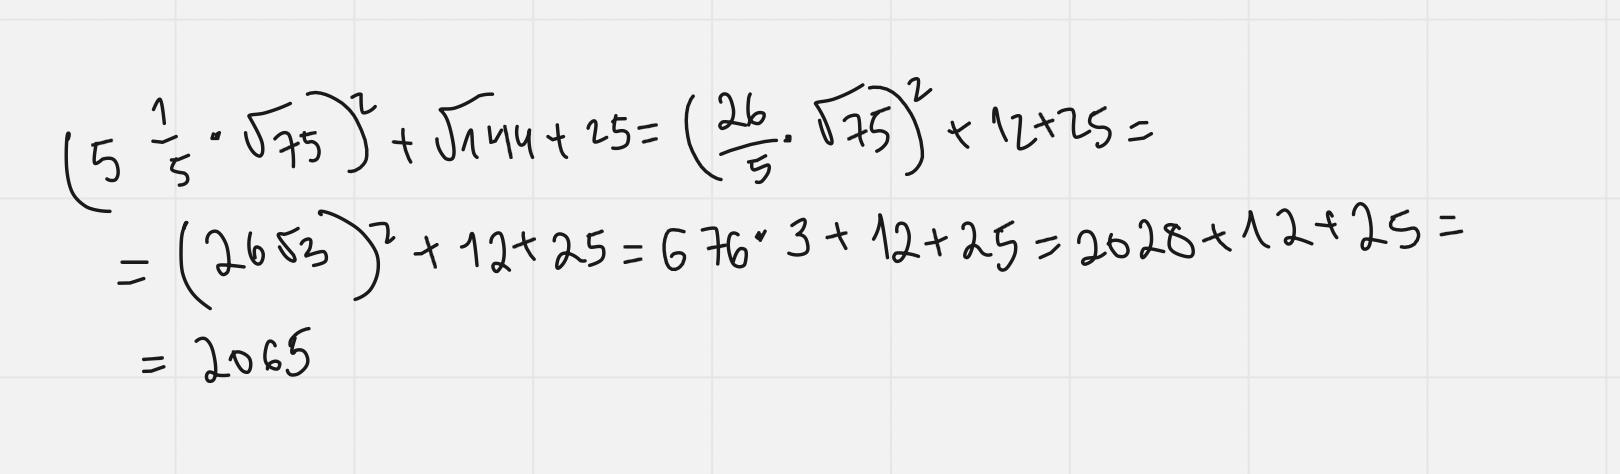 (5 1/5 · √75)² + √144 + 25 = (26/5 · √75)² + 12 + 25 =
= (26√3)² + 12 + 25 = 676 · 3 + 12 + 25 = 2028 + 12 + 25 =
= 2065